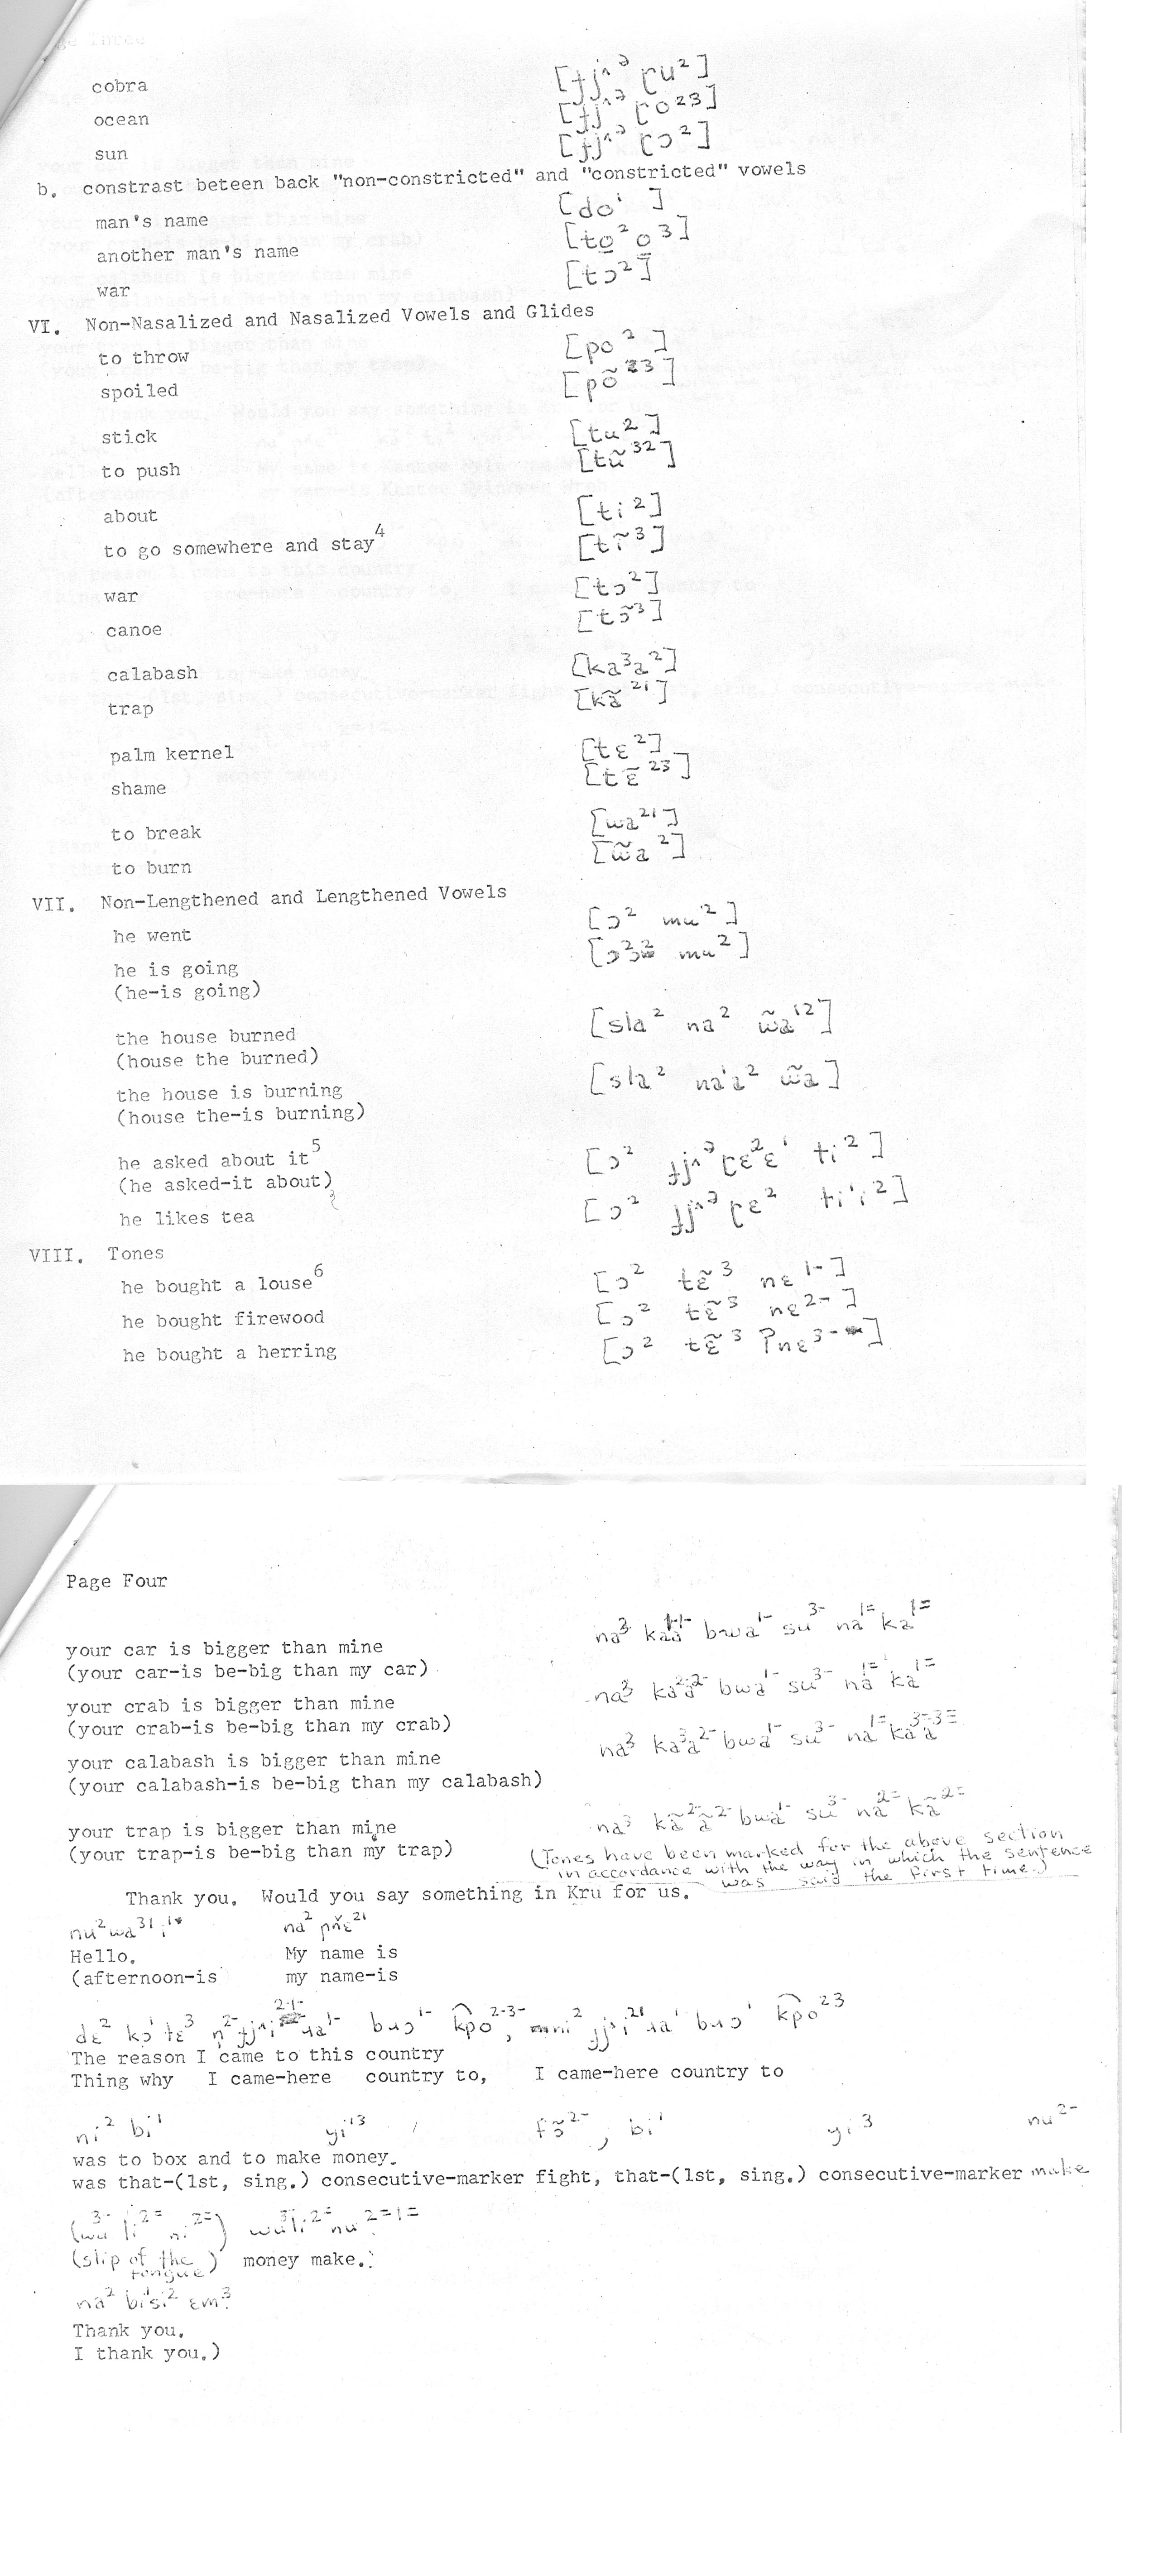 cobra [ɟjᶺᵊ ɽu²]
ocean [ɟjᶺᵊ ɽo²³]
sun [ɟjᶺᵊ ɽɔ²]
b. constrast beteen back "non-constricted" and "constricted" vowels
man's name [do¹ ]
another man's name [to̠²o̠³]
war [tɔ²]
VI. Non-Nasalized and Nasalized Vowels and Glides
to throw [po²]
spoiled [põ²³]
stick [tu²]
to push [tũ³²]
about [ti²]
to go somewhere and stay⁴ [tĩ³]
war [tɔ²]
canoe [tɔ̃³]
calabash [ka³a²]
trap [kã²¹]
palm kernel [tɛ²]
shame [tɛ̃²³]
to break [wa²¹]
to burn [w̃a²]
VII. Non-Lengthened and Lengthened Vowels
he went [ɔ² mu²]
he is going [ɔ²ɔ² mu²]
(he-is going)
the house burned [sla² na² w̃a¹²]
(house the burned)
the house is burning [sla² na¹a² w̃a]
(house the-is burning)
he asked about it⁵ [ɔ² ɟjᶺᵊɽɛ²ɛ¹ ti²]
(he asked-it about)
he likes tea [ɔ² ɟjᶺᵊɽɛ² ti¹i²]
VIII. Tones
he bought a louse⁶ [ɔ² tɛ̃³ nɛ¹⁻]
he bought firewood [ɔ² tɛ̃³ nɛ²⁻]
he bought a herring [ɔ² tɛ̃³ ʔnɛ³⁻]
Page Four
your car is bigger than mine na³ ka¹⁻a¹⁻ bwa¹⁻ su³⁻ na¹⁼ ka¹⁼
(your car-is be-big than my car)
your crab is bigger than mine na³ ka²⁻a²⁻ bwa¹⁻ su³⁻ na¹⁼ ka¹⁼
(your crab-is be-big than my crab)
your calabash is bigger than mine na³ ka³a²⁻ bwa¹⁻ su³⁻ na¹⁼ ka³⁻a³⁼
(your calabash-is be-big than my calabash)
your trap is bigger than mine na³ kã²⁻ã²⁻ bwa¹⁻ su³⁻ na²⁼ kã²⁼
(your trap-is be-big than my trap) (Tones have been marked for the above section
in accordance with the way in which the sentence
was said the first time.)
Thank you. Would you say something in Kru for us.
nu²wa³¹i¹ na² ɲn̆ɛ²¹
Hello. My name is
(afternoon-is my name-is
dɛ² kɔ¹tɛ³ bwɔ¹⁻ k͡po²⁻³⁻, bwɔ¹ k͡po²³
The reason I came to this country
Thing why I came-here country to, I came-here country to
ni² bi¹ yi¹³ fɔ̃²⁻, bi¹ yi³ nu²⁻
was to box and to make money.
was that-(1st, sing.) consecutive-marker fight, that-(1st, sing.) consecutive-marker make
(wa³⁻ li²⁼ ni²⁼) wa³li²⁼ nu²⁼¹⁼
(slip of the tongue) money make.
na² bi¹si² ɛm³
Thank you.
I thank you.)